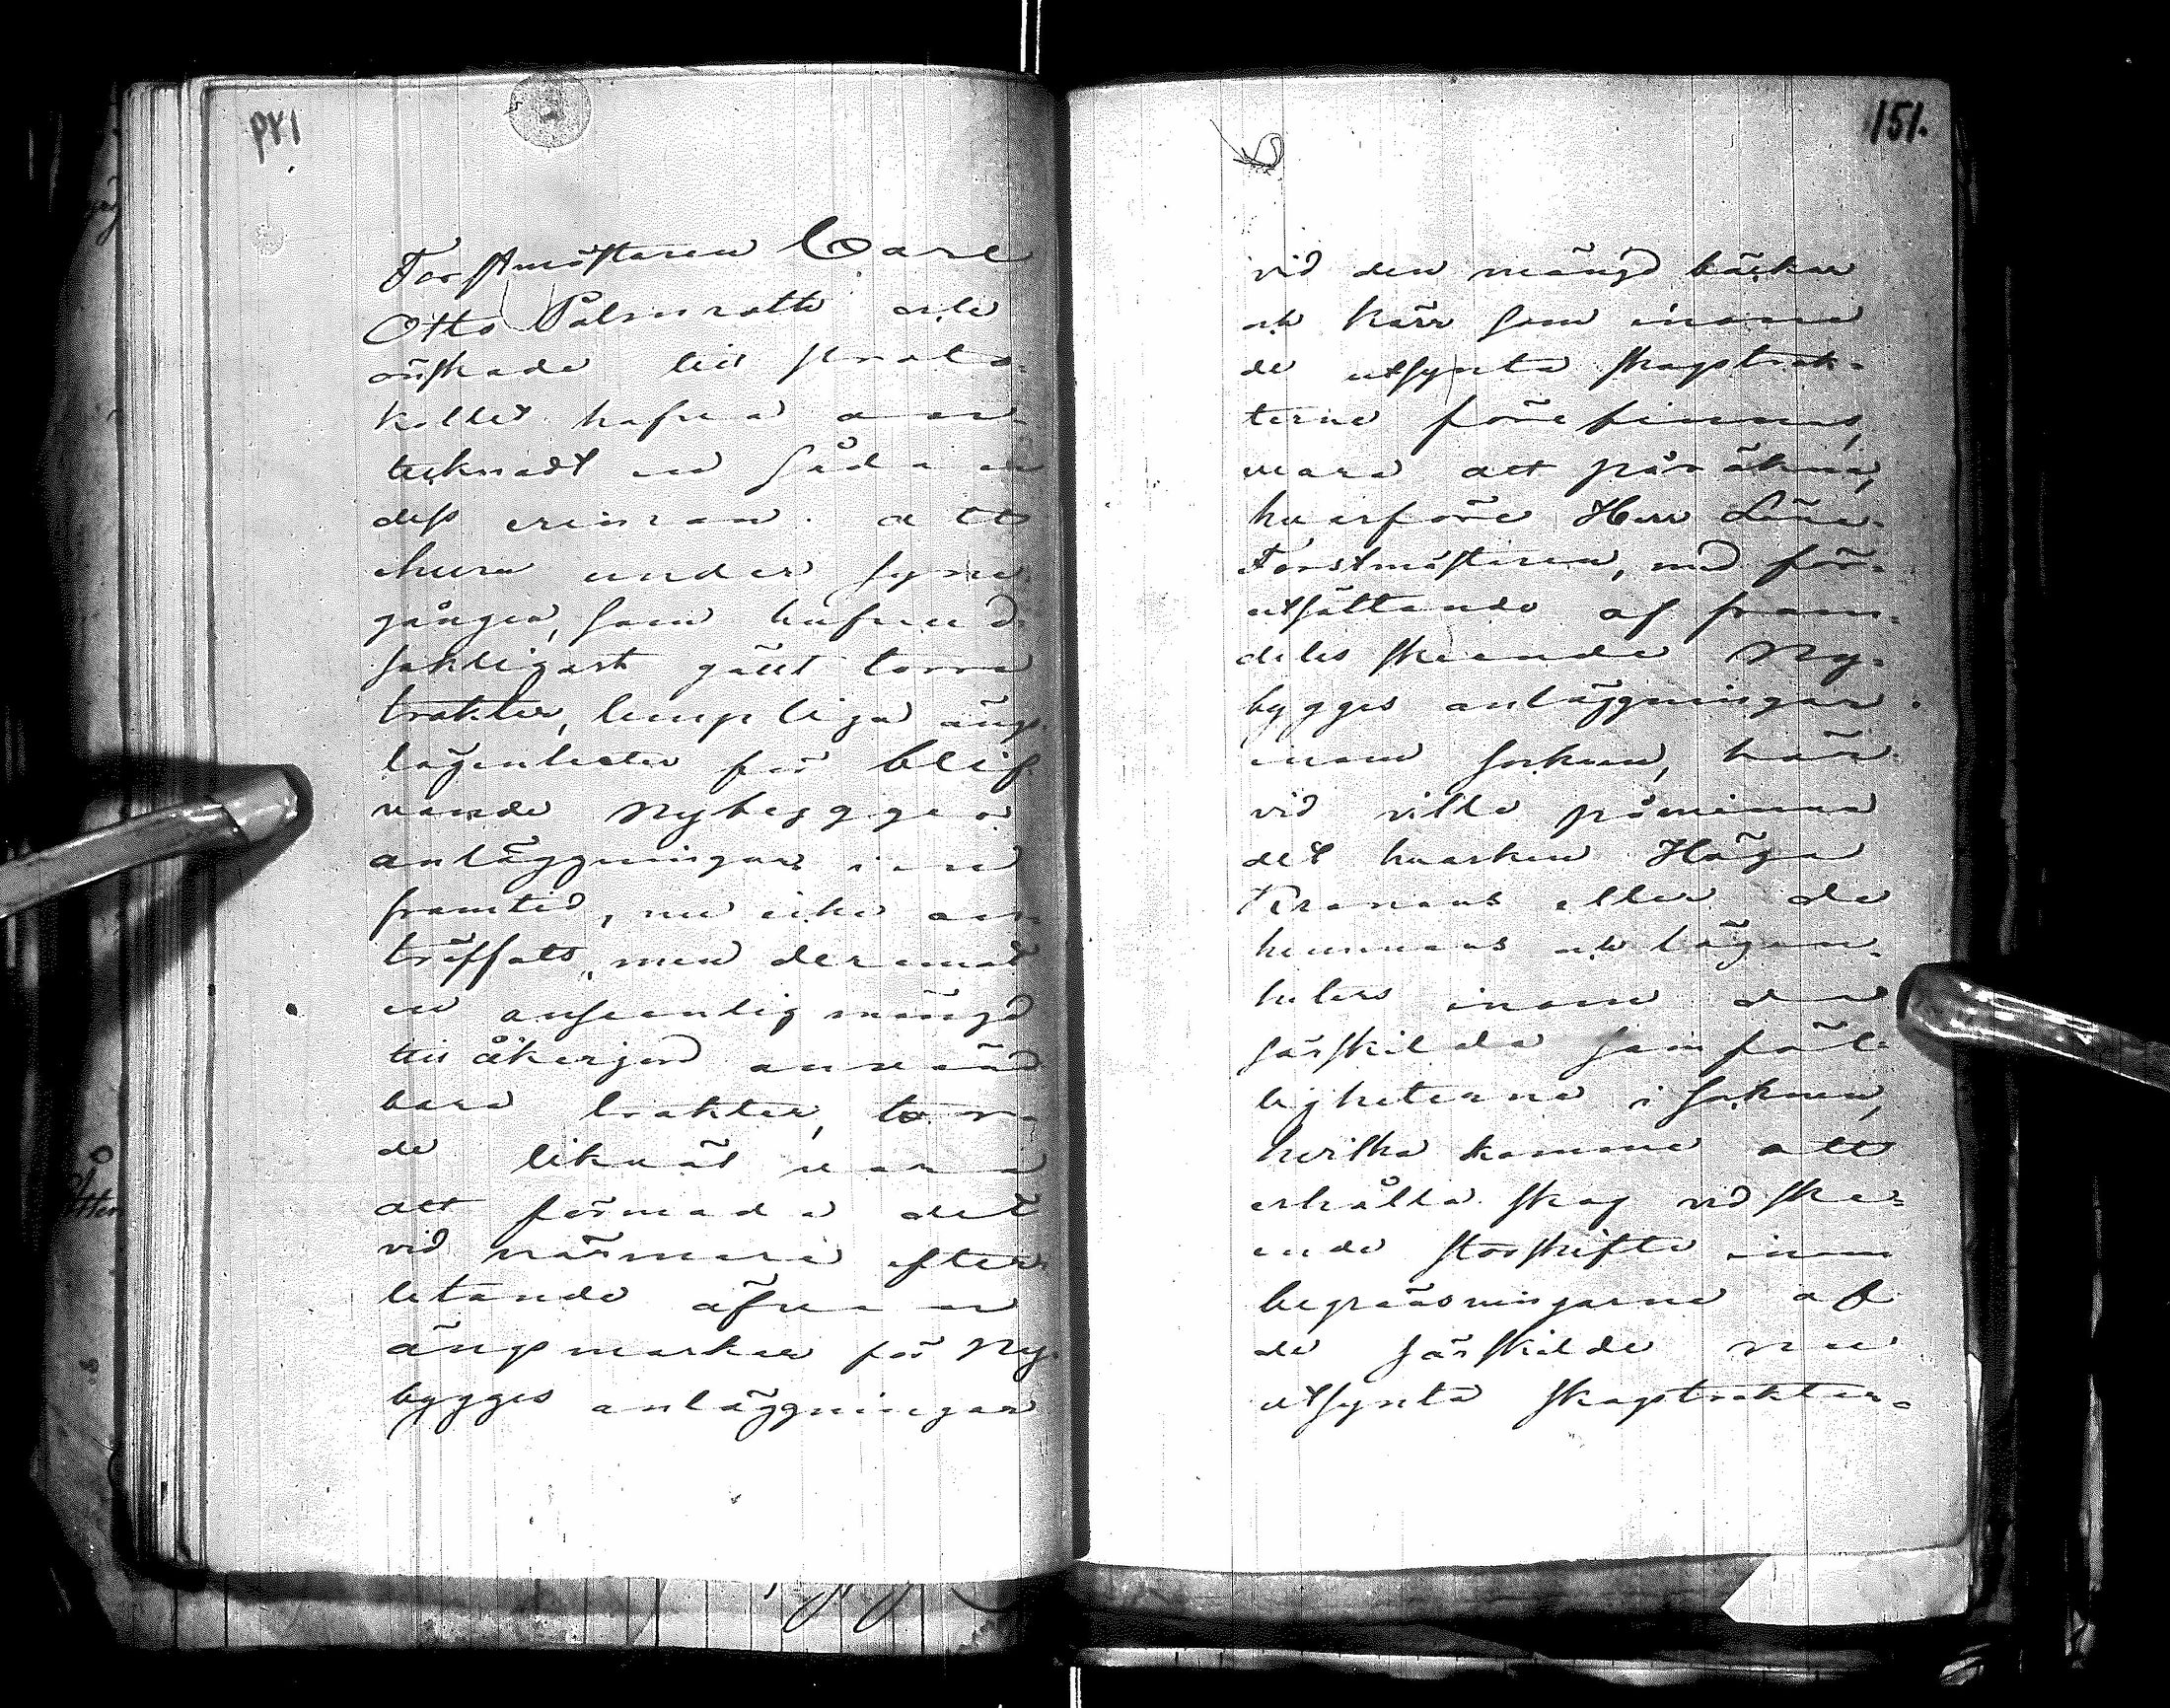 Forstmästaren Carl
Otto Palmroth och
önskade till Proto-
kollet hafva an-
tecknadt en sådan
dess erinran att
ehuru under syne
gången, som hufvud-
sakligast gällt torra
trakter, lämpliga ängs
lägenheter för blif
vande Nybygges
anläggningar i en
framtid, nu icke an-
träffats, men deremot
en ansenlig mängd
till åkerjord använd
bara trakter, tor-
de likväl vara
att förmoda det
vid närmare efter
letande äfven
ängsmarker för Ny-
bygges anläggningar
151.
vid den mängd bäckar
och kärr som inom
de utsynta skogstrak-
terne förefinnas,
vara att påräkna,
hvarföre Herr Läns-
Forstmästaren, med för-
utsättande af fram-
deles skeende Ny-
bygges anläggningar
inom socknen, här
vid ville påminna
det hvarken Höga
Kronans eller de
hemmans och lägen-
heters inom de
särskilda samfäl-
ligheterne i socknen,
hvilka komme att
erhålla skog vid ske-
ende storskifte inom
begränsningarne af
de särskilde nu
utsynta skogstrakter-